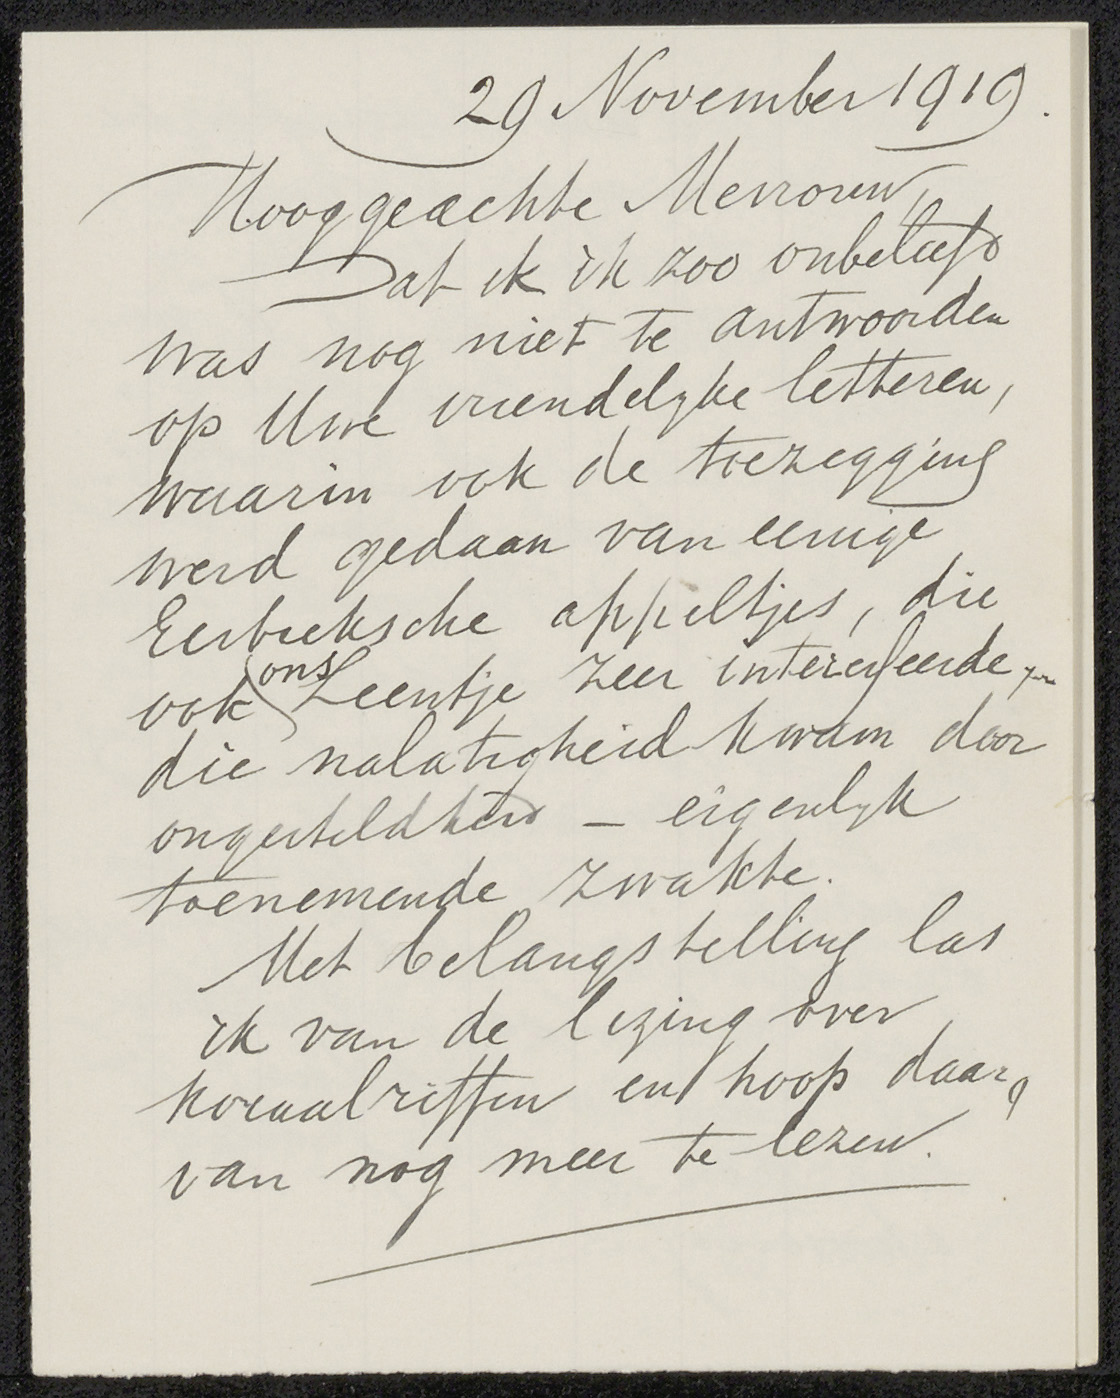 29 November 1919.
Hooggeachte Mevrouw,
Dat ik ik zoo onbeleefd
was nog niet te antwoorden
op Uwe vriendelyke letteren,
waarin ook de toezegging
werd gedaan van eenige
Eerbeeksche appeltjes, die
ook ons Leentje zeer interesseerde,
die nalatigheid kwam door
ongesteldheid – eigenlyk
toenemende zwakte.
Met belangstelling las
ik van de lezing over
koraalriffen en hoop daar
van nog meer te lezen.